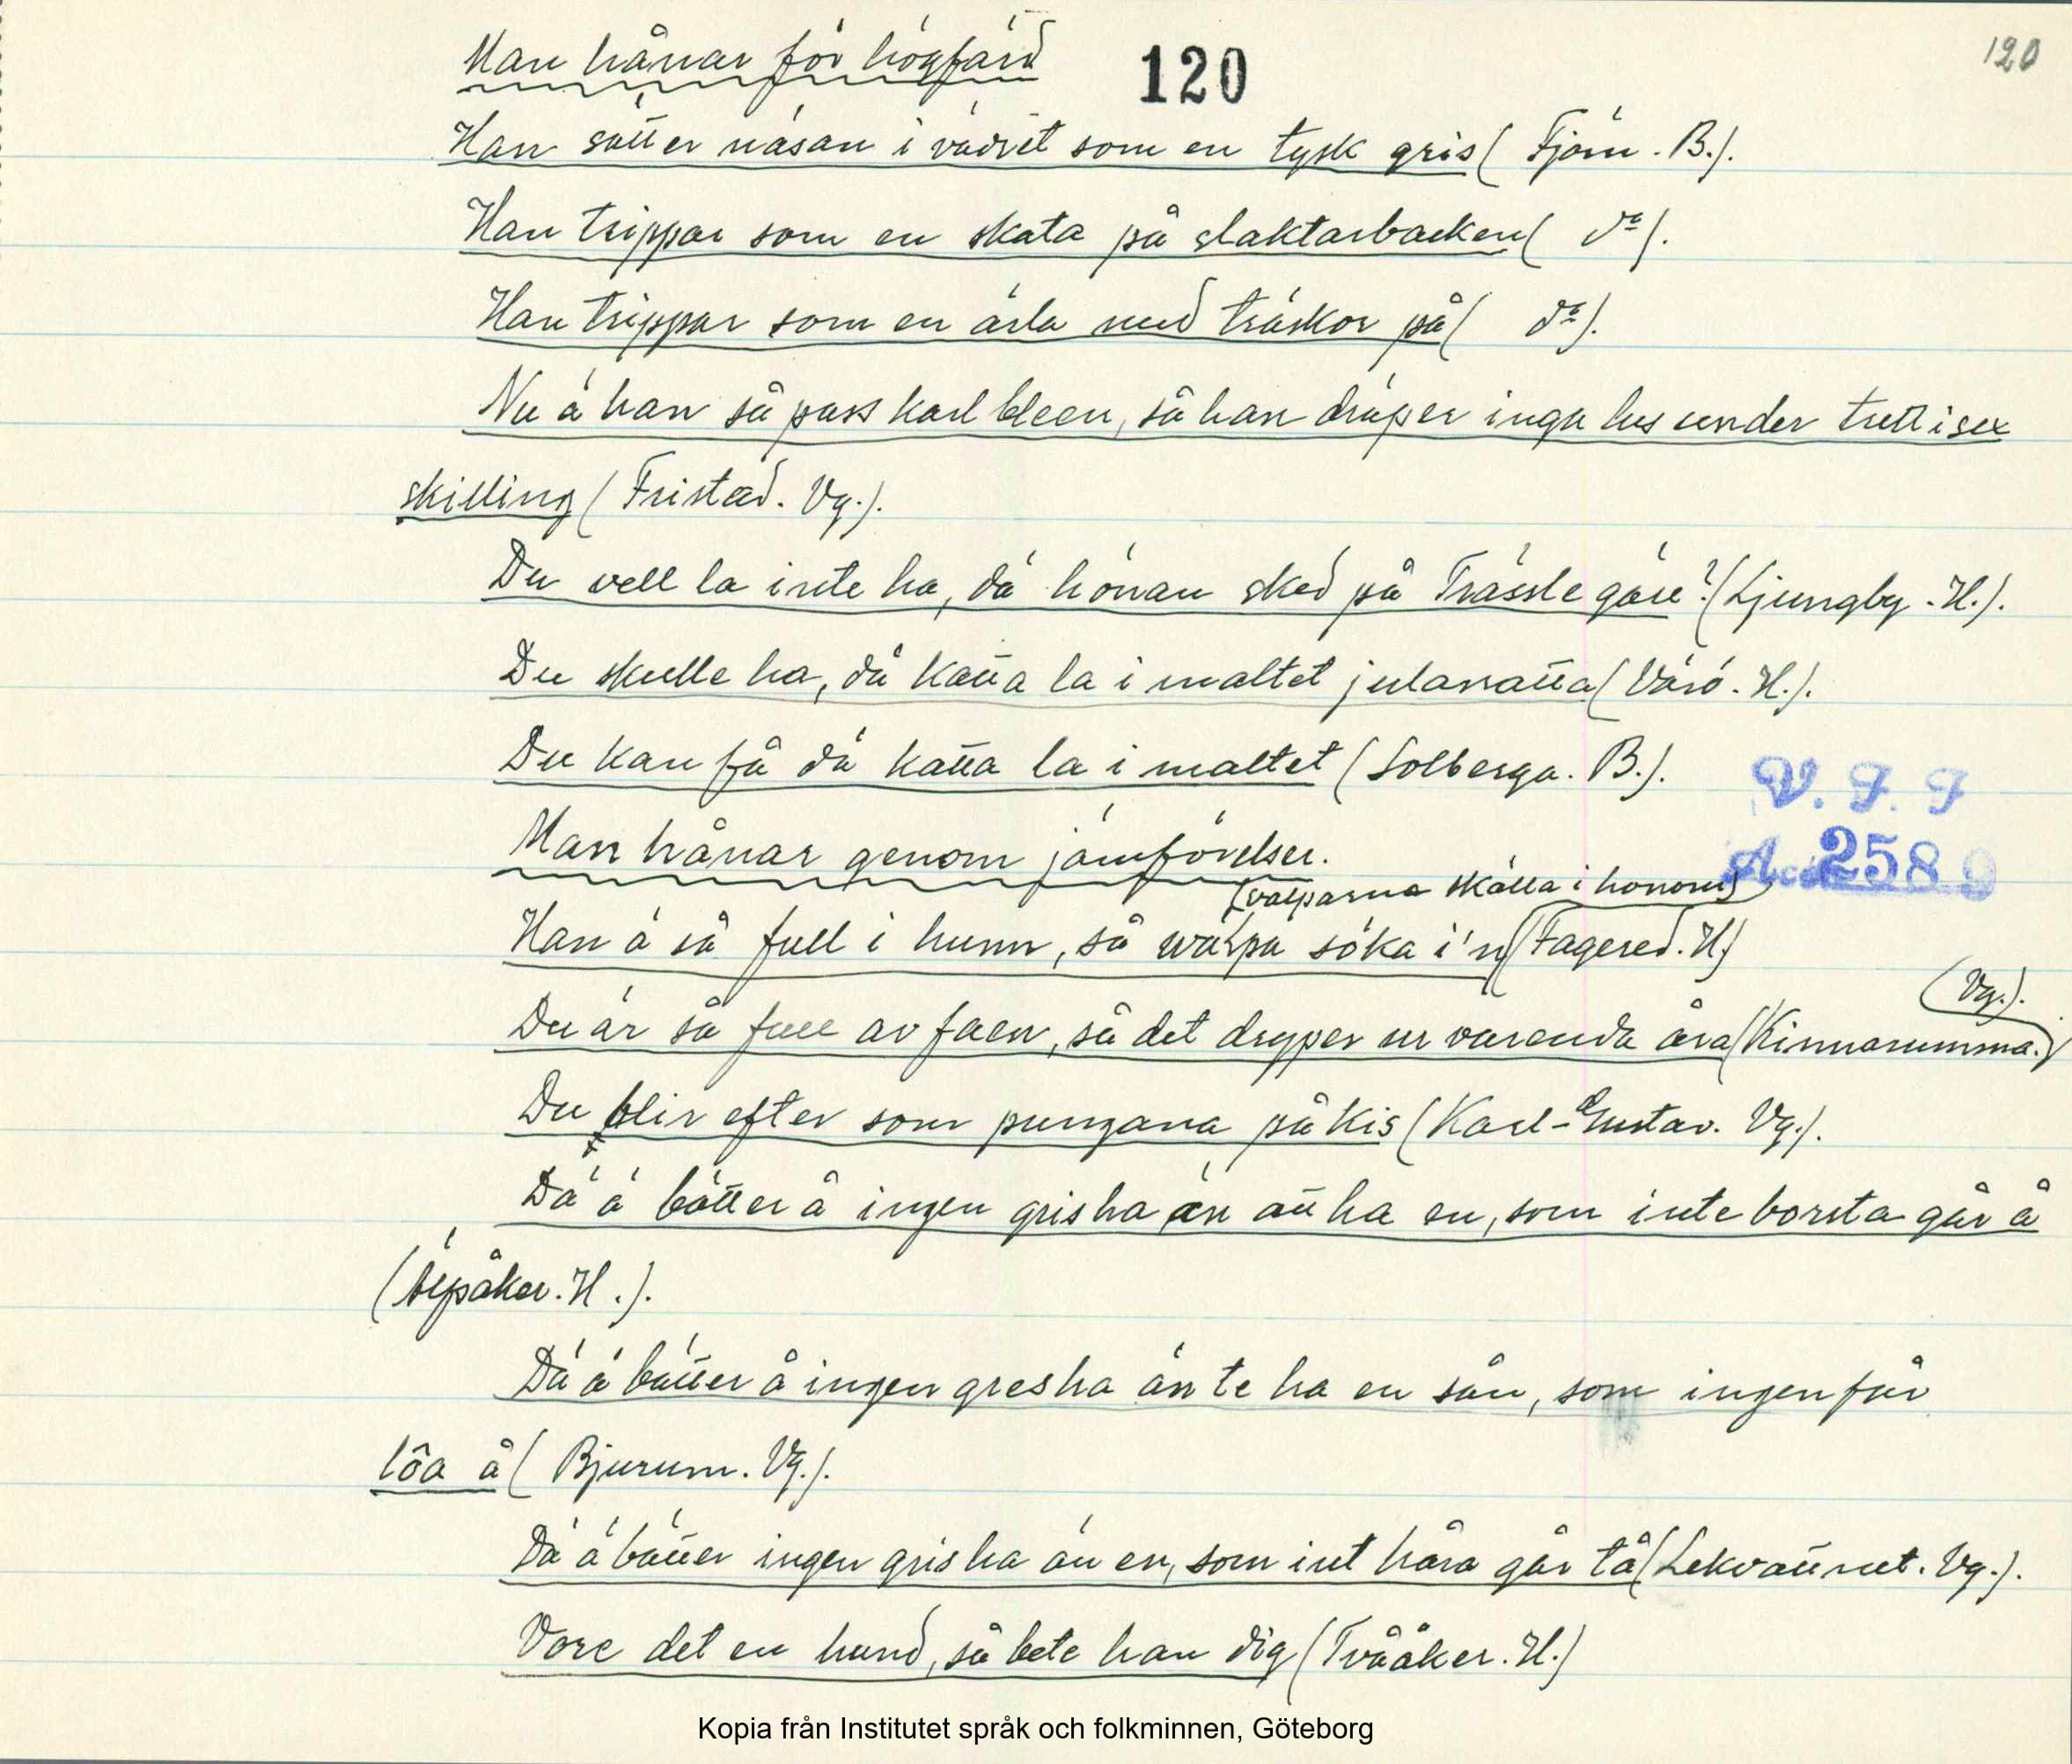 Man hånar för högfärd 120 120
Han sätter näsan i vädret som en tysk gris (Tjörn. B.).
Han trippar som en skata på slaktarbacken (do).
Han trippar som en ärla med träskor på (do).
Nu ä han så pass karl bleen, så han dräper inga lus under trettisex
skilling (Fristad. Vg.).
Du vell la inte ha, dä hönan sked på Trässle gäre? (Ljungby. H.).
Du skulle ha, dä katta la i maltet julanatta (Värö. H.).
Du kan få dä katta la i maltet (Solberga. B.).
V. F. F
Man hånar genom jämförelser.
Acc. 2589
(valparna skälla i honom)
Han ä så full i hunn, så wälpa söka i'n (Fagered. H.)
(Vg.).
Du är så full av faen, så det dryper ur varenda åra (Kinnarumma.)
Du blir efter som pungana på Kis (Karl-Gustav. Vg.).
Dä ä bätter å ingen gris ha än att ha en, som inte borsta går å
(Sӗpåker. H.).
Dä ä bätter å ingen gres ha än te ha en sån, som ingen får
lôa å (Bjurum. Vg.).
Dä ä bätter ingen gris ha än en, som int håra går tå (Lekvattnet. Vg.).
Vore det en hund, så bete han dig (Tvååker. H.)
Kopia från Institutet språk och folkminnen, Göteborg